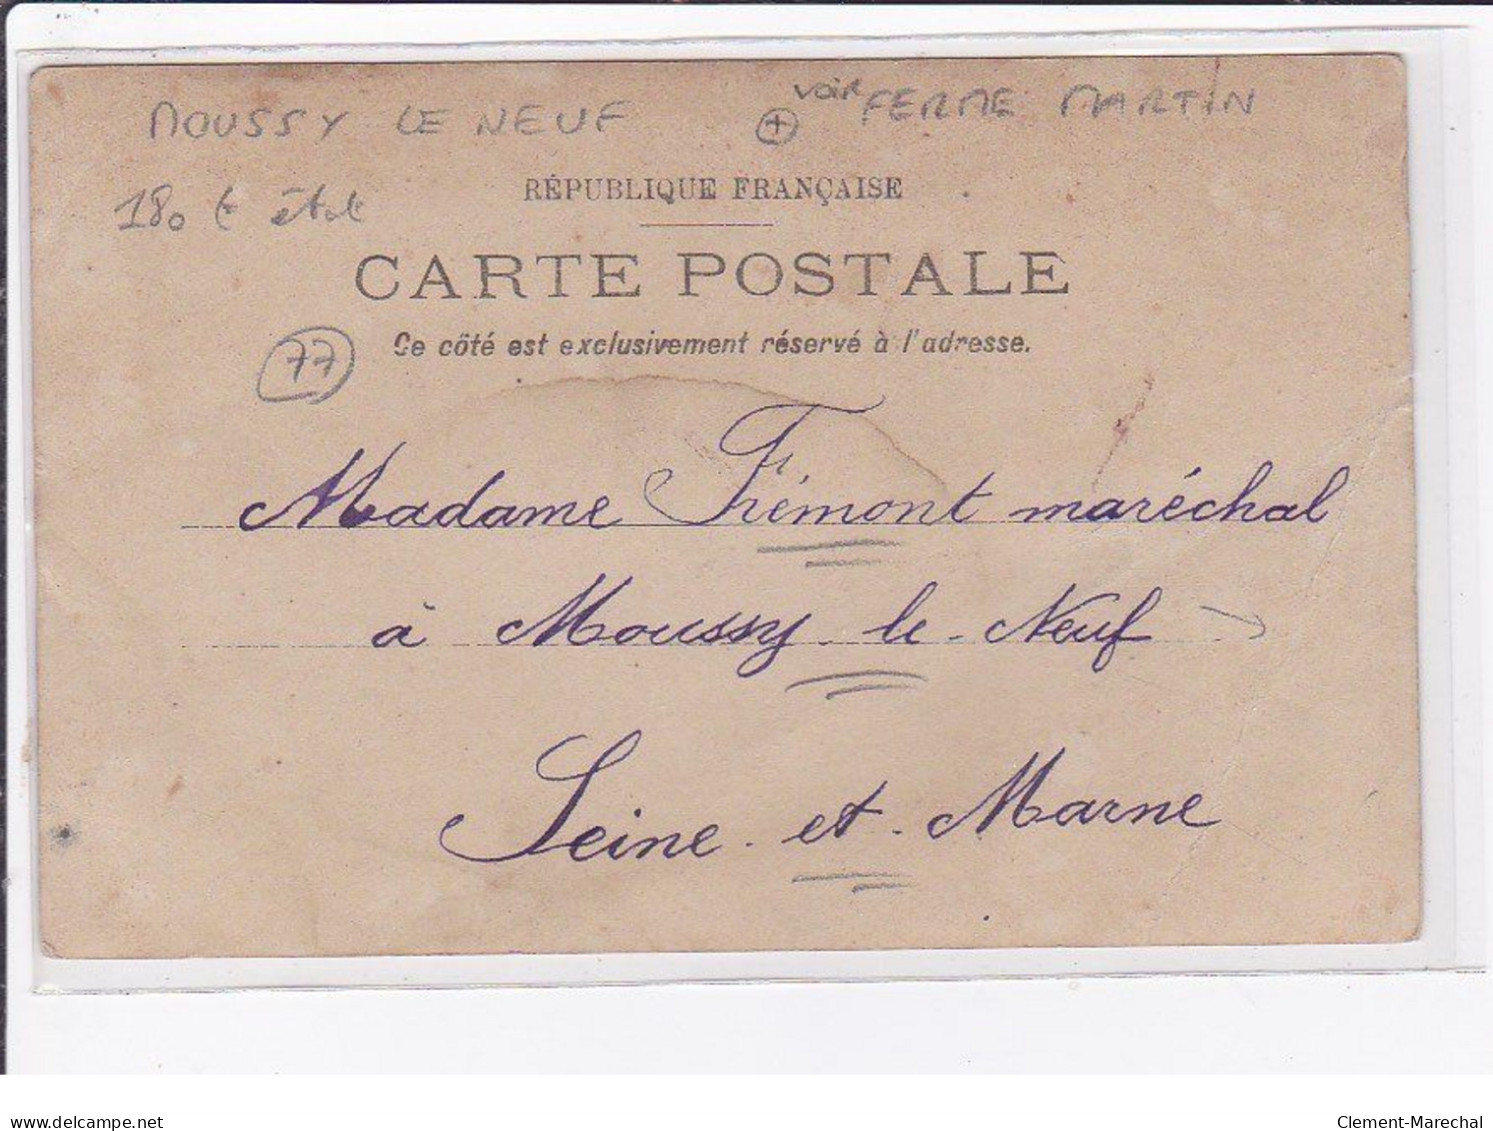 MOUSSY LE NEUF
voir FERME MARTIN
RÉPUBLIQUE FRANÇAISE
CARTE POSTALE
Ce côté est exclusivement réservé à l'adresse.
77
Madame Frémont maréchal
à Moussy-le-Neuf
Seine-et-Marne
delcampe.net
Clement-Marechal